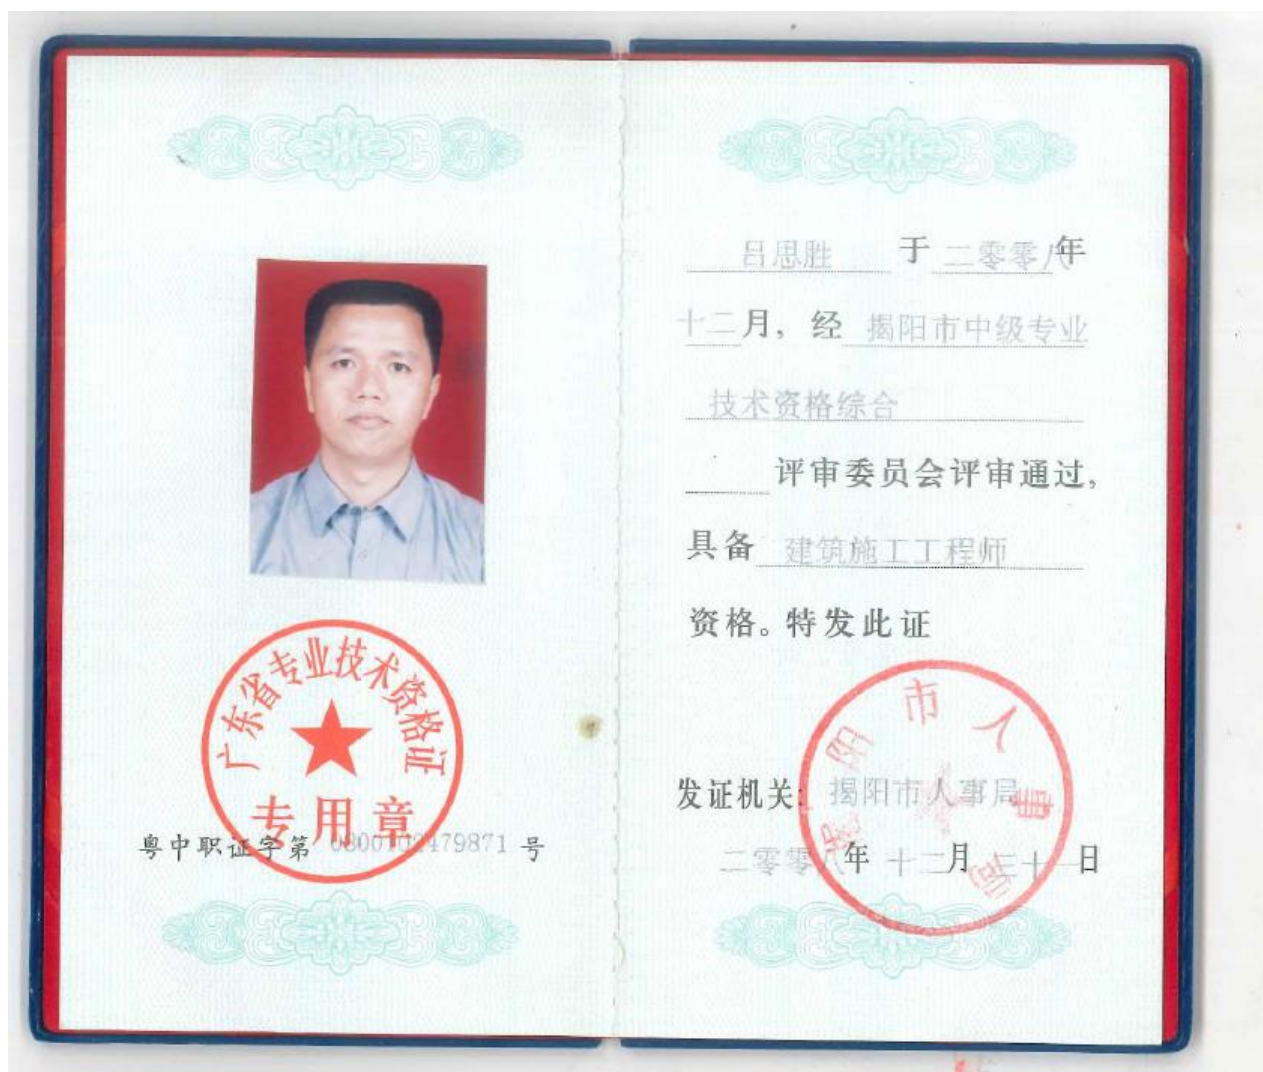 广东省专业技术资格证
专用章
粤中职证字第 0800102479871 号
吕思胜 于 二零零八年
十二月，经 揭阳市中级专业
技术资格综合
评审委员会评审通过，
具备 建筑施工工程师
资格。特发此证
揭阳市人事局
发证机关：揭阳市人事局
二零零八年 十二月 三十一日